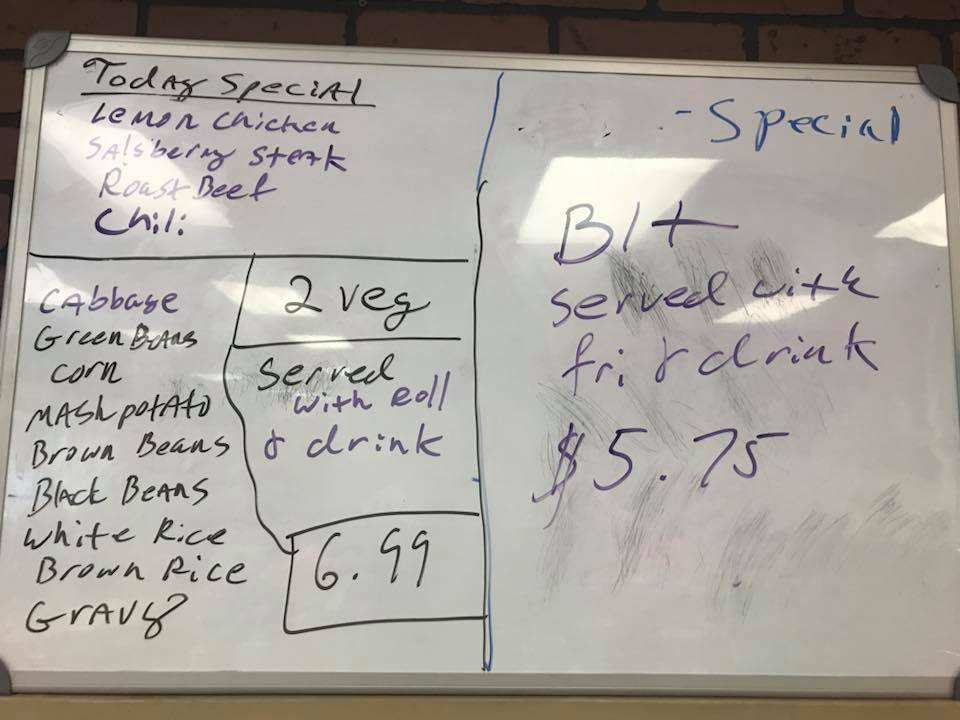 Today Special
Lemon Chicken
Salsberry Steak
Roast Beef
Chili
Cabbage
Green Beans
Corn
Mash potato
Brown Beans
Black Beans
White Rice
Brown Rice
Gravy
2 veg
Served
with Roll
& drink
6.99
- Special
Blt
served with
fri & drink
$5.75